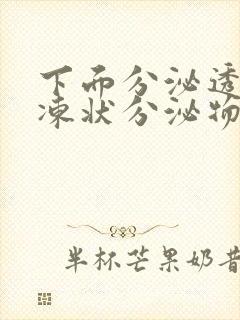 下面分泌透
凍状分泌物
半杯芒果奶昔